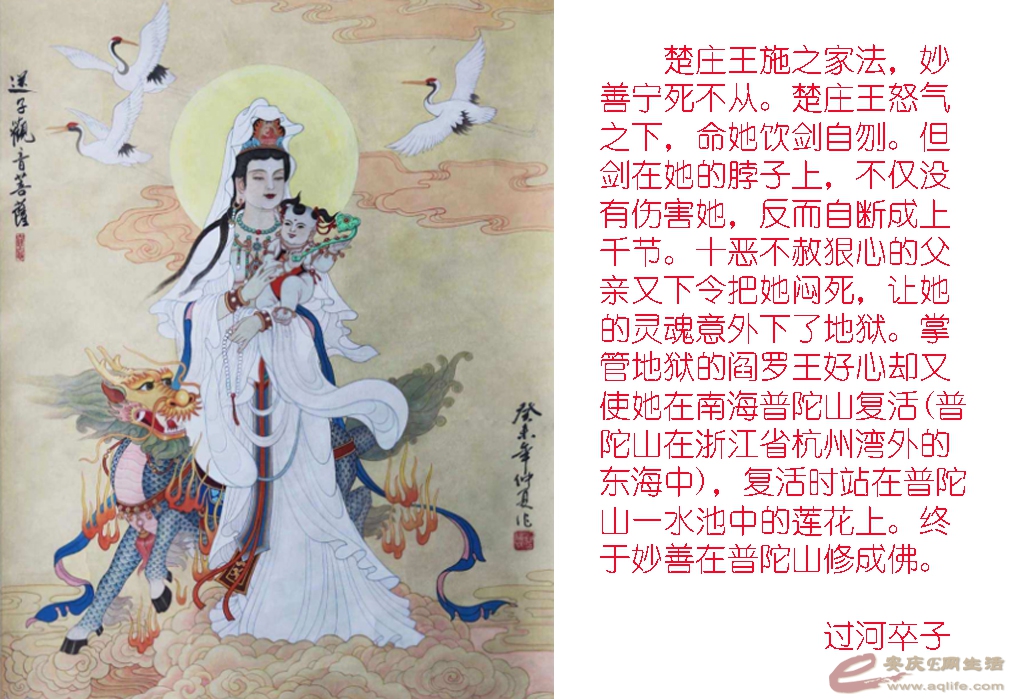 送子觀音菩薩
癸未年仲夏作
楚庄王施之家法，妙
善宁死不从。楚庄王怒气
之下，命她饮剑自刎。但
剑在她的脖子上，不仅没
有伤害她，反而自断成上
千节。十恶不赦狠心的父
亲又下令把她闷死，让她
的灵魂意外下了地狱。掌
管地狱的阎罗王好心却又
使她在南海普陀山复活(普
陀山在浙江省杭州湾外的
东海中)，复活时站在普陀
山一水池中的莲花上。终
于妙善在普陀山修成佛。
过河卒子
安庆E网生活
www.aqlife.com